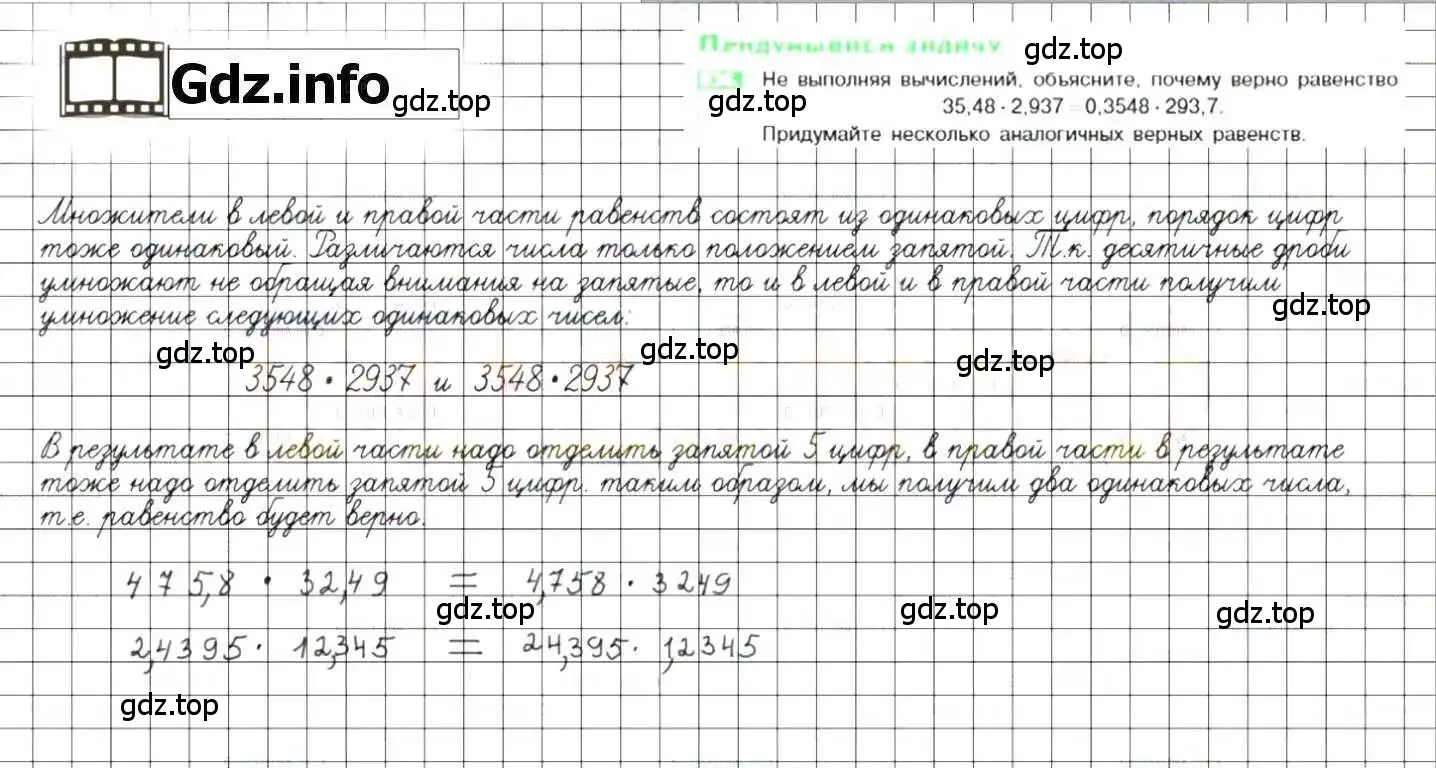 Придумываем задачу
gdz.top
Gdz.info
gdz.top
Не выполняя вычислений, объясните, почему верно равенство
gdz.top
35,48 · 2,937 = 0,3548 · 293,7.
Придумайте несколько аналогичных верных равенств.
Множители в левой и правой части равенств состоят из одинаковых цифр, порядок цифр
тоже одинаковый. Различаются числа только положением запятой. Т.к. десятичные дроби
умножают не обращая внимания на запятые, то и в левой и в правой части получим
gdz.top
умножение следующих одинаковых чисел:
gdz.top
gdz.top
gdz.top
3548 · 2937 и 3548 · 2937
В результате в левой части надо отделить запятой 5 цифр, в правой части в результате
тоже надо отделить запятой 5 цифр. таким образом, мы получим два одинаковых числа,
т.е. равенство будет верно.
475,8 · 32,49 = 4,758 · 3249
gdz.top
gdz.top
gdz.top
2,4395 · 12,345 = 24,395 · 1,2345
gdz.top